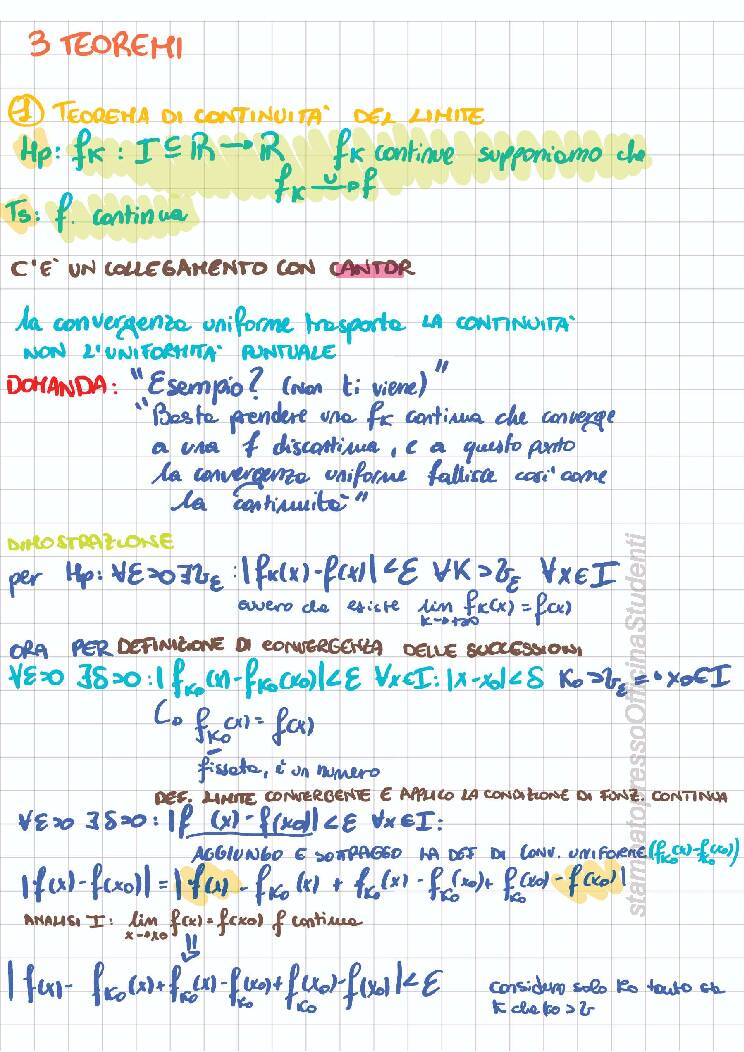 3 TEOREMI
① TEOREMA DI CONTINUITA' DEL LIMITE
Hp: fK : I ⊆ ℝ → ℝ fK continue supponiamo che
fK —u→ f
Ts: f. continua
C'E' UN COLLEGAMENTO CON CANTOR
la convergenza uniforme trasporta LA CONTINUITA'
NON L'UNIFORMITA' PUNTUALE
DOMANDA: "Esempio? (Non ti viene)"
"Basta prendere una fK continua che converge
a una f discontinua, e a questo punto
la convergenza uniforme fallisce così come
la continuità"
DIMOSTRAZIONE
per Hp: ∀ε>0 ∃νε : |fK(x)-f(x)|<ε ∀K>νε ∀x∈I
ovvero che esiste lim K→+∞ fK(x)=f(x)
ORA PER DEFINIZIONE DI CONVERGENZA DELLE SUCCESSIONI
∀ε>0 ∃δ>0 : |fK0(x)-fK0(x0)|<ε ∀x∈I: |x-x0|<δ K0>νε x0∈I
fK0(x)=f(x)
fissata, è un numero
DEF. LIMITE CONVERGENTE E APPLICO LA CONDIZIONE DI FUNZ. CONTINUA
∀ε>0 ∃δ>0 : |f (x)-f(x0)|<ε ∀x∈I:
AGGIUNGO E SOTTRAGGO LA DEF DI CONV. UNIFORME (fK0(x)-fK0(x0))
|f(x)-f(x0)| = |f(x)-fK0(x)+fK0(x)-fK0(x0)+fK0(x0)-f(x0)|
ANALISI I: lim x→x0 f(x)=f(x0) f continua
⇓
|f(x)-fK0(x)+fK0(x)-fK0(x0)+fK0(x0)-f(x0)|<ε
considero solo K0 tanto
K che K0>ν
stampatopressoOfficinaStudenti